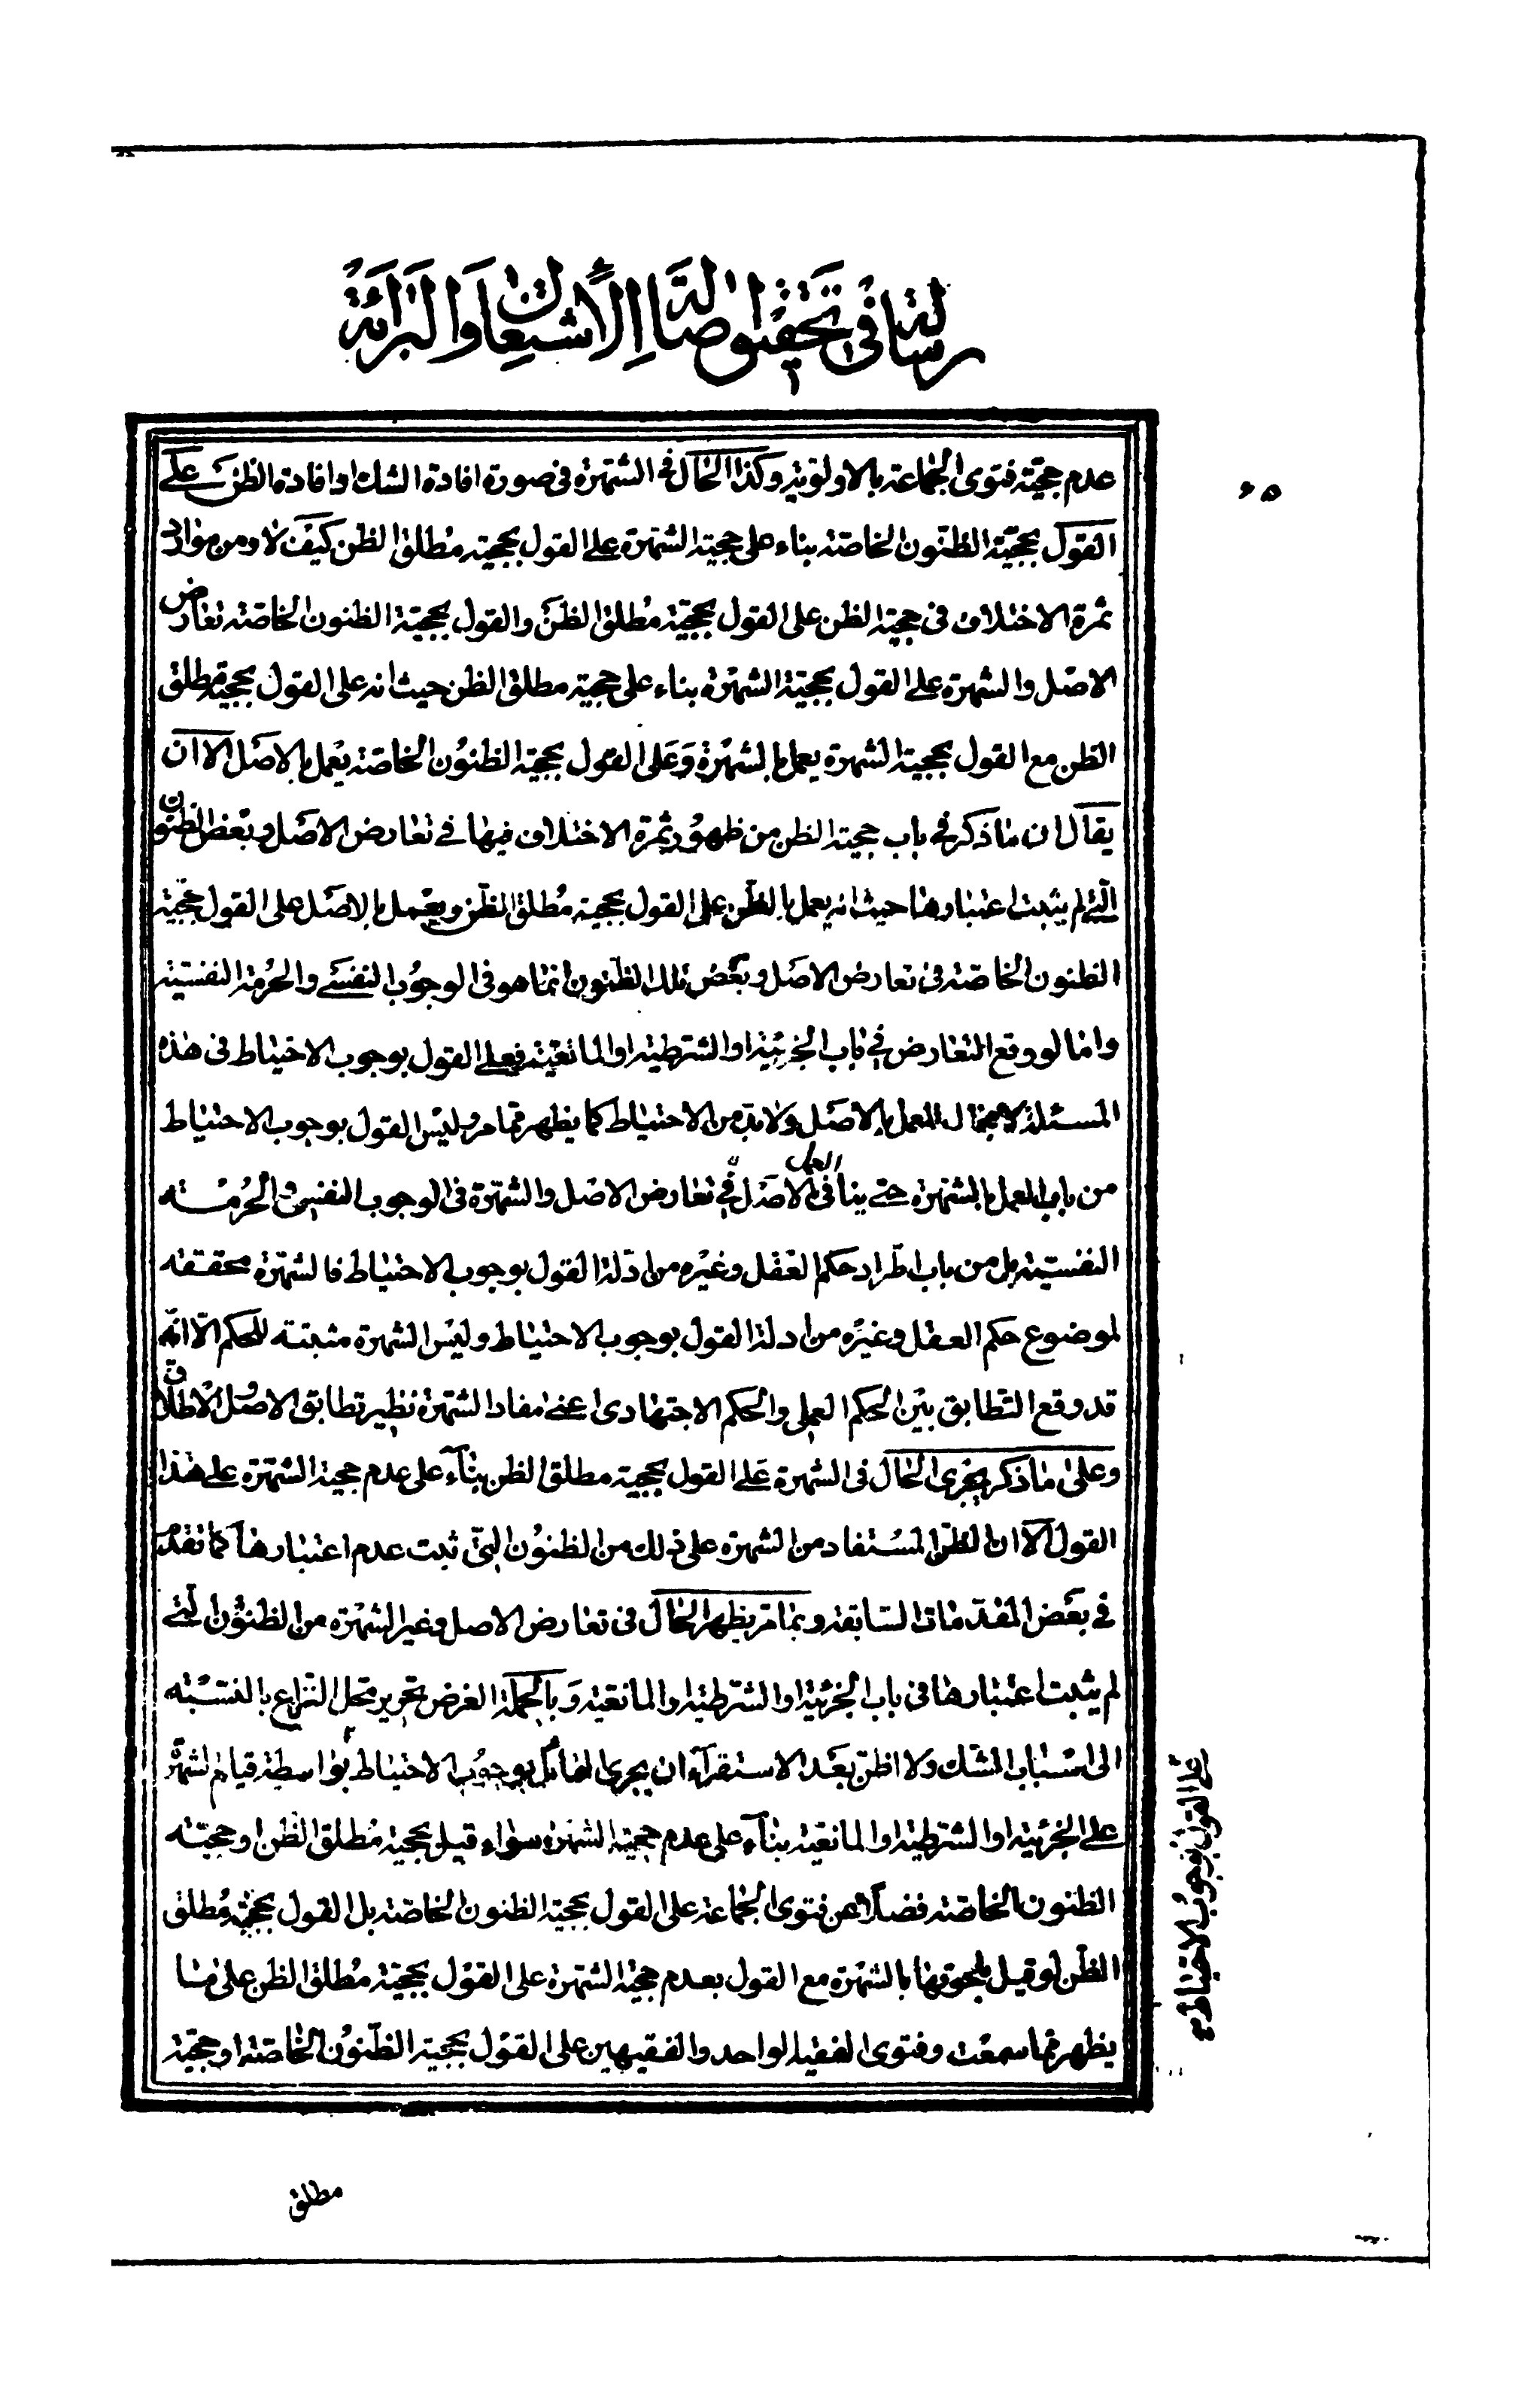 رسالة في تحقيق اصالة الاشتغال والبرائة
۶۵
عدم حجّية فتوى الجماعة بالاولوية وكذا الحال في الشهرة في صورة افادة الشك او افادة الظن على
القول بحجّية الظنون الخاصّة بناء على حجية الشهرة على القول بحجية مطلق الظن كيف لا ومن موارد
ثمرة الاختلاف في حجية الظن على القول بحجيّة مطلق الظنّ والقول بحجيّة الظنون الخاصّة تعارض
الاصل والشهرة على القول بحجيّة الشهرة بناء على حجية مطلق الظن حيث انه على القول بحجية مطلق
الظن مع القول بحجية الشهرة يعمل بالشهرة وعلى القول بحجية الظنون الخاصّة يعمل بالاصل الا ان
يقال ان ما ذكر في باب حجية الظن من ظهور ثمرة الاختلاف فيها في تعارض الاصل وبعض الظنون
الّتي لم يثبت اعتبارها حيث انه يعمل بالظّن على القول بحجية مطلق الظّن ويعمل بالاصل على القول بحجيّة
الظنون الخاصّة في تعارض الاصل وبعض تلك الظّنون انما هو في الوجوب النفسي والحرمة النفسيّة
واما لو وقع التعارض في باب الجزئية او الشرطية او المانعيّة فعلى القول بوجوب الاحتياط في هذه
المسئلة لا مجال للعمل بالاصل ولا بد من الاحتياط كما يظهر مما مر وليس القول بوجوب الاحتياط
من باب العمل بالشهرة حتى ينافي العمل بالاصل في تعارض الاصل والشهرة في الوجوب النفسي والحرمة
النفسيّة بل من باب اطّراد حكم العقل وغيره من ادّلة القول بوجوب الاحتياط فالشهرة محققة
لموضوع حكم العقل وغيره من ادلة القول بوجوب الاحتياط وليس الشهرة مثبتة للحكم الّا انّه
قد وقع التطابق بين الحكم العملى والحكم الاجتهادى اعنى مفاد الشهرة نظير تطابق الاصول الاطلاق
وعلى ما ذكر يجرى الحال في الشهرة على القول بحجية مطلق الظن بناء على عدم حجية الشهرة على هذا
القول الا ان الظنّ المستفاد من الشهرة على ذلك من الظنون التي ثبت عدم اعتبارها كما تقدم
في بعض المقدّمات السّابقة وبما مر يظهر الحال في تعارض الاصل وغير الشهرة من الظنون التي
لم يثبت اعتبارها في باب الجزئية او الشرطية او المانعية وبالجملة الغرض تحرير محل النزاع بالنسبة
الى اسباب الشك ولا اظن بعد الاستقرآء ان يجرى القائل بوجوب الاحتياط بواسطة قيام الشهرة
على الجزئية او الشرطية او المانعيّة بنآء على عدم حجية الشهرة سواء قيل بحجية مطلق الظن او حجيّة
الظنون الخاصّة فضلا عن فتوى الجماعة على القول بحجية الظنون الخاصّة بل القول بحجية مطلق
الظن لو قيل بلحوقها بالشهرة مع القول بعدم حجيّة الشهرة على القول بحجيّة مطلق الظن على ما
يظهر مما سمعت وفتوى الفقيه الواحد والفقيهين على القول بحجية الظّنون الخاصّة او حجيّة
على القول بوجوب الاحتياط
مطلق